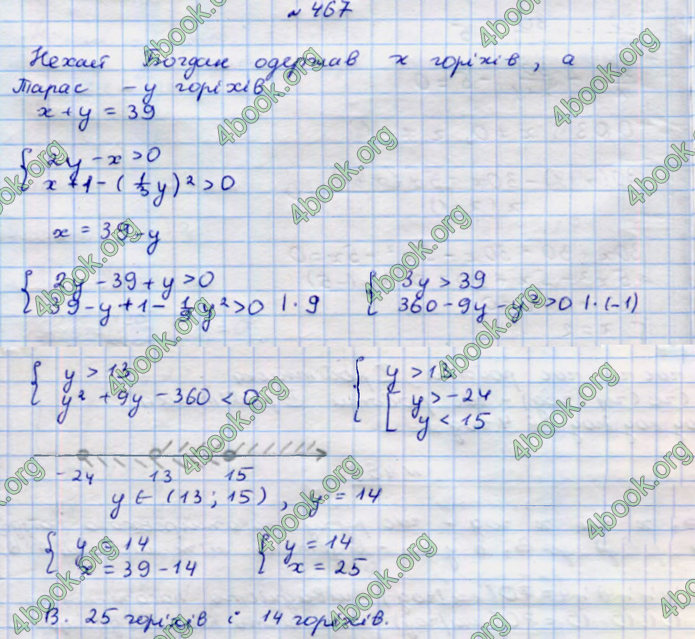 № 467
Нехай Богдан одержав x горіхів, а
Тарас – y горіхів
x + y = 39
{ 2y - x > 0
x + 1 - (1/3 y)² > 0
x = 39 - y
{ 2y - 39 + y > 0 { 3y > 39
39 - y + 1 - 1/9 y² > 0 | · 9 360 - 9y - y² > 0 | · (-1)
{ y > 13 { y > 13
y² + 9y - 360 < 0 [ y > -24
y < 15
-24 13 15
y ∈ (13; 15), y = 14
{ y = 14 { y = 14
x = 39 - 14 x = 25
В. 25 горіхів і 14 горіхів.
4book.org